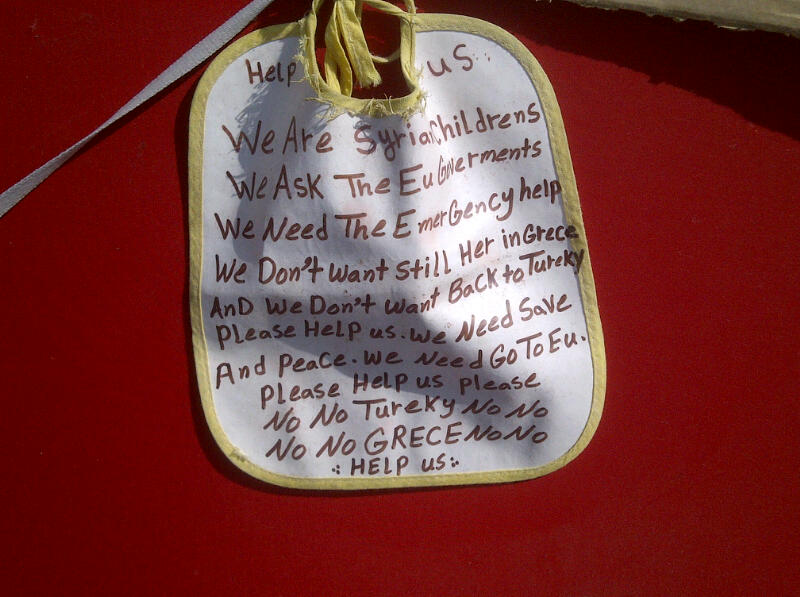 Help us
We Are SyriaChildrens
We Ask The Eu Goverments
We Need The Emergency help
We Don't want Still Her in Grece
AnD we Don't want Back to Tureky
please Help us. we Need Save
And peace. we Need Go To Eu.
please Help us please
No No Tureky No No
No No GRECE No No
HELP us